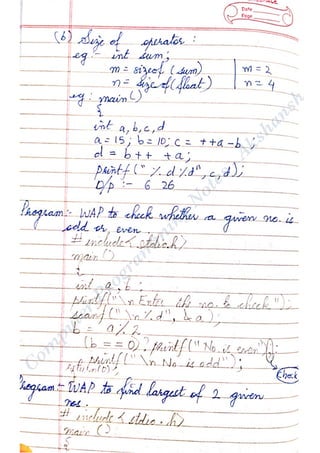 Date
Page
(b) Size of operator :
eg :- int sum;
m = sizeof (sum) | m = 2
n = size of (float) | n = 4
eg : main ()
{
int a, b, c, d
a = 15; b = 10; c = ++a - b;
d = b++ + a;
printf (" %d %d", c, d);
O/p :- 6 26
Program:- WAP to check whether a given no. is
odd or, even.
# include < stdio.h>
main ()
{
int a, b ;
printf (" \n Enter the no. to check ");
scanf ("\n %d", & a);
b = a % 2
(b == 0) ? printf (" No. is even") :
printf (" \n No. is odd");
return (0);
check
Program:- WAP to find largest of 2 given
nos.
# include < stdio.h>
main ()
{
Computer Programming Notes Akshansh